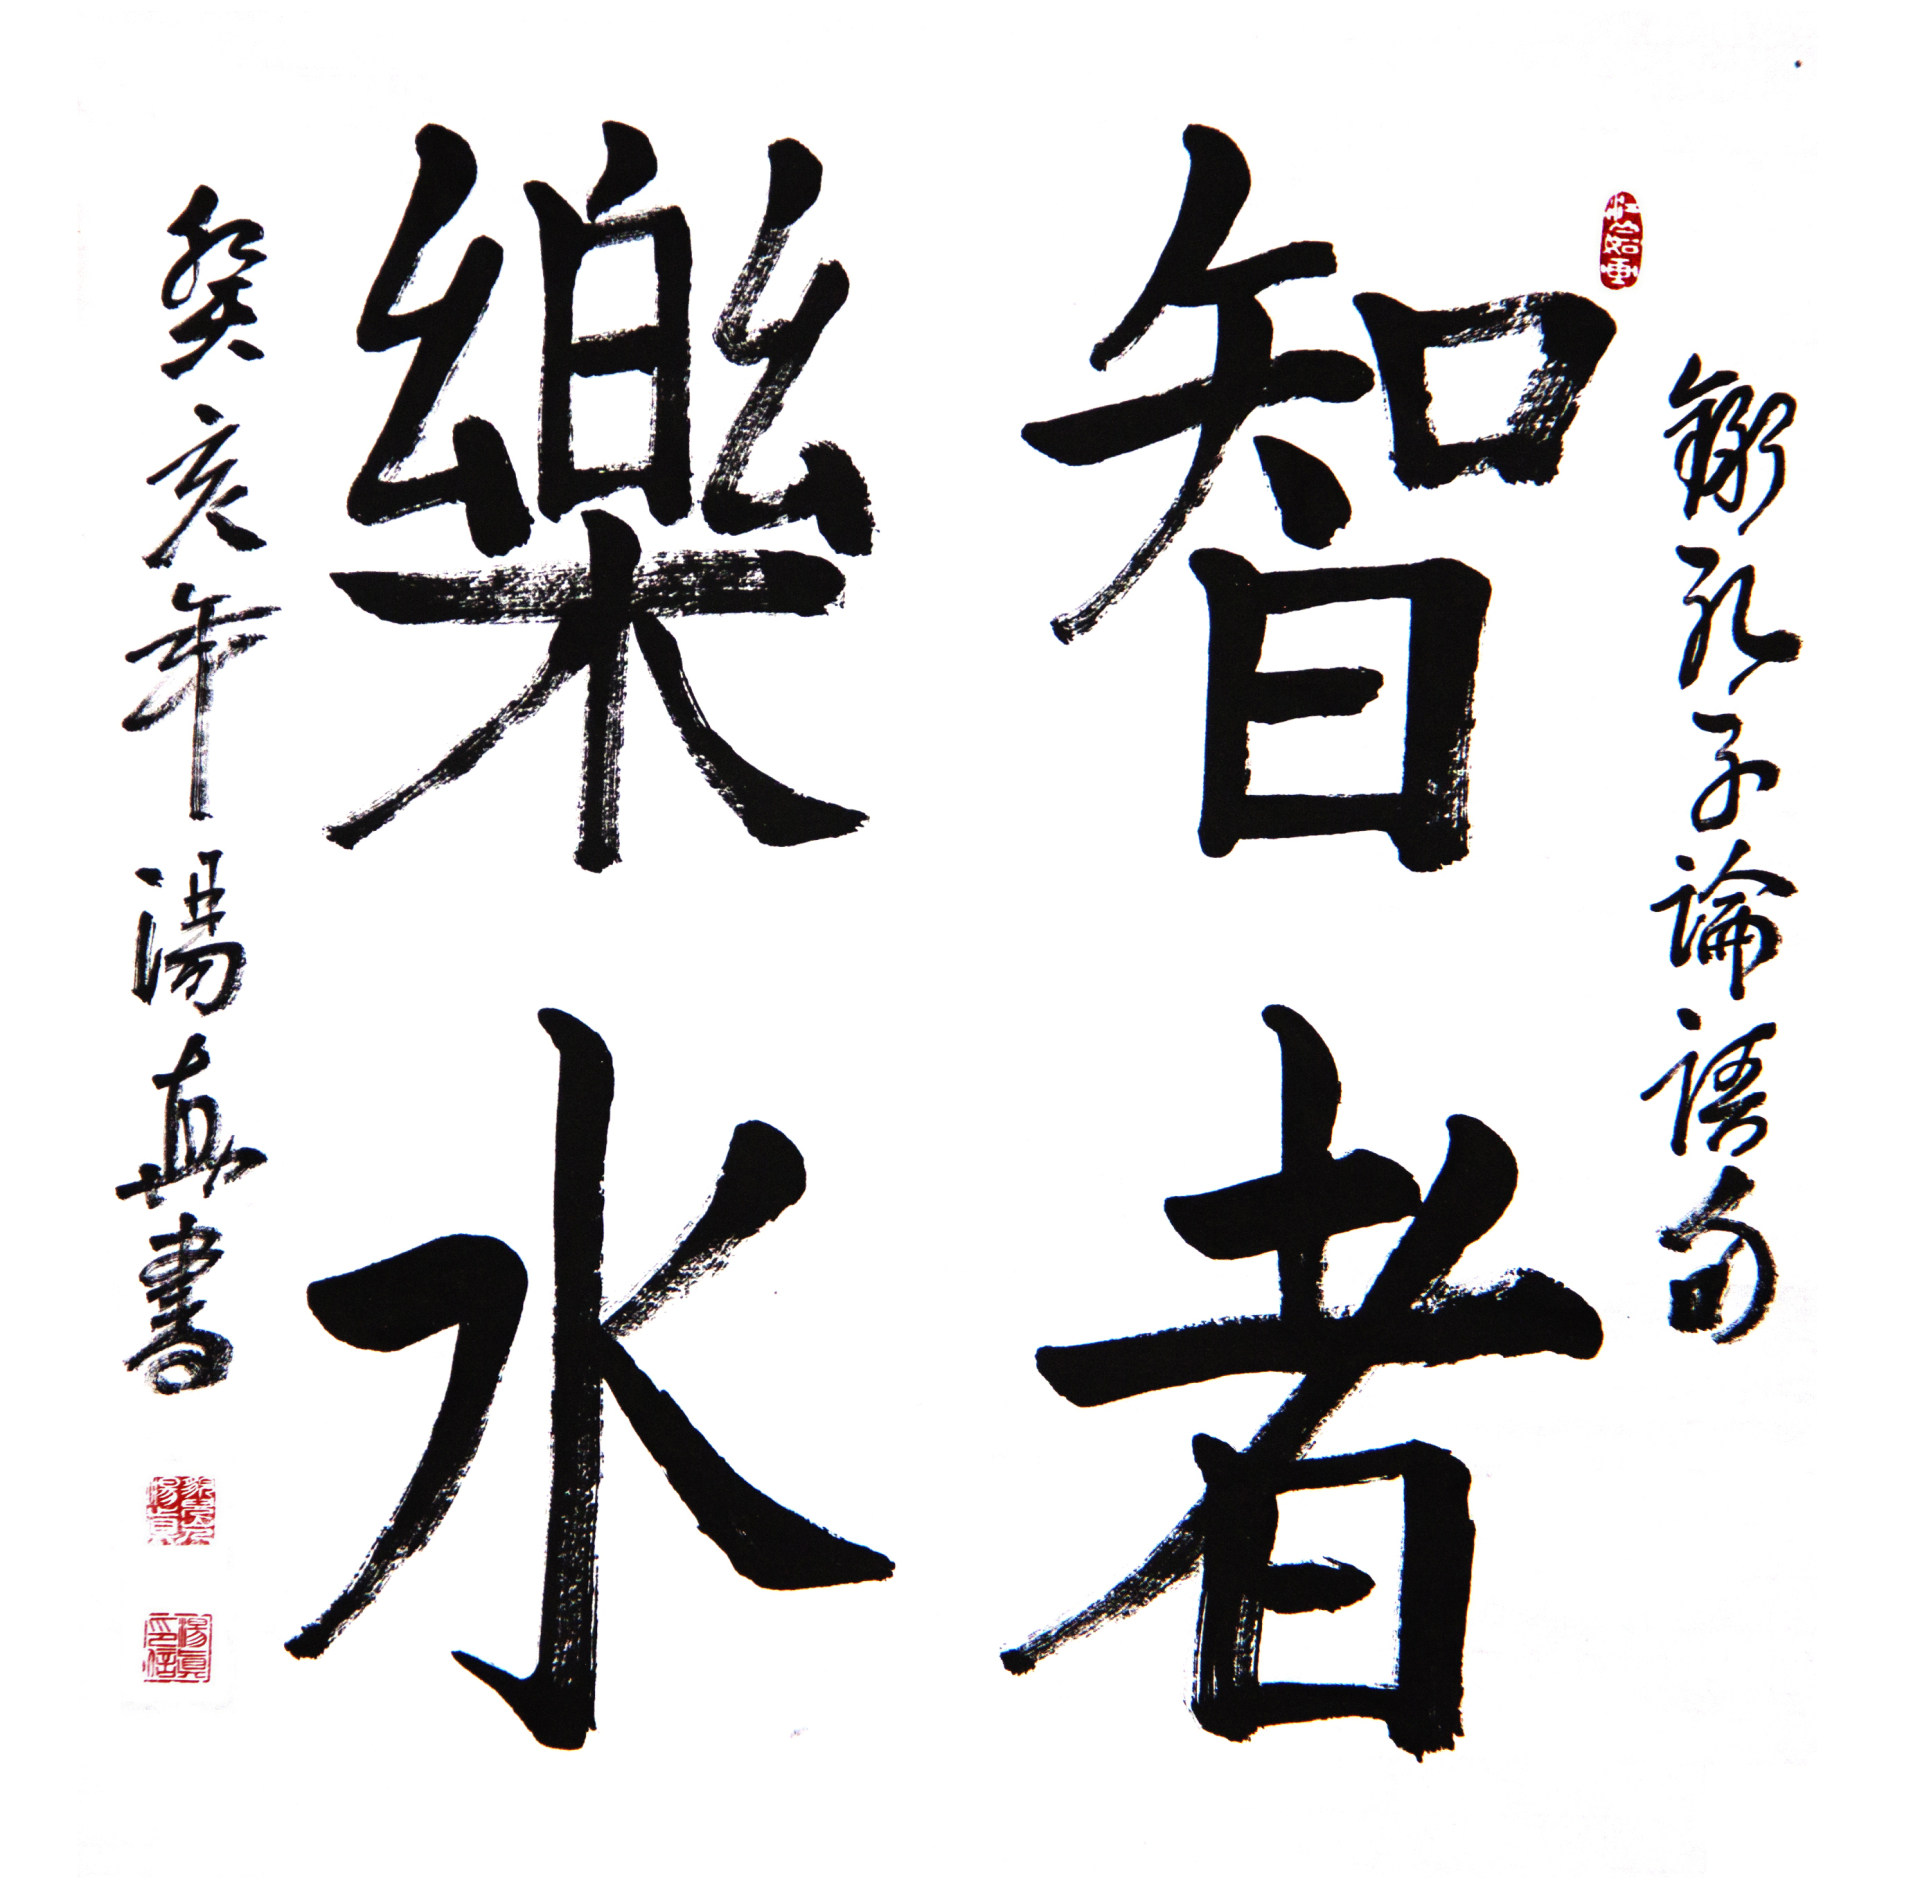 錄孔子論語句
智者
樂水
癸亥年湯真書